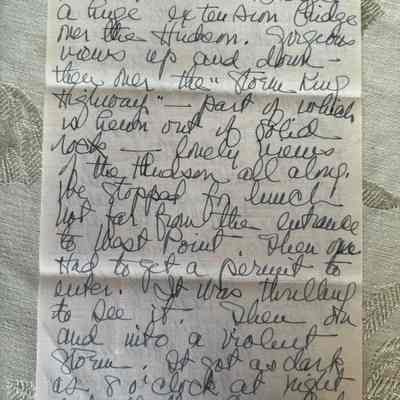 a huge extension bridge
over the Hudson. Gorgeous
views up and down -
then over the "Storm King
Highway" - part of which
is hewn out of solid
rock - lovely views
of the Hudson all along.
We stopped for lunch
not far from the entrance
to West Point. Then we
had to get a permit to
enter. It was thrilling
to see it. Then on
and into a violent
storm. It got as dark
as 8 o'clock at night